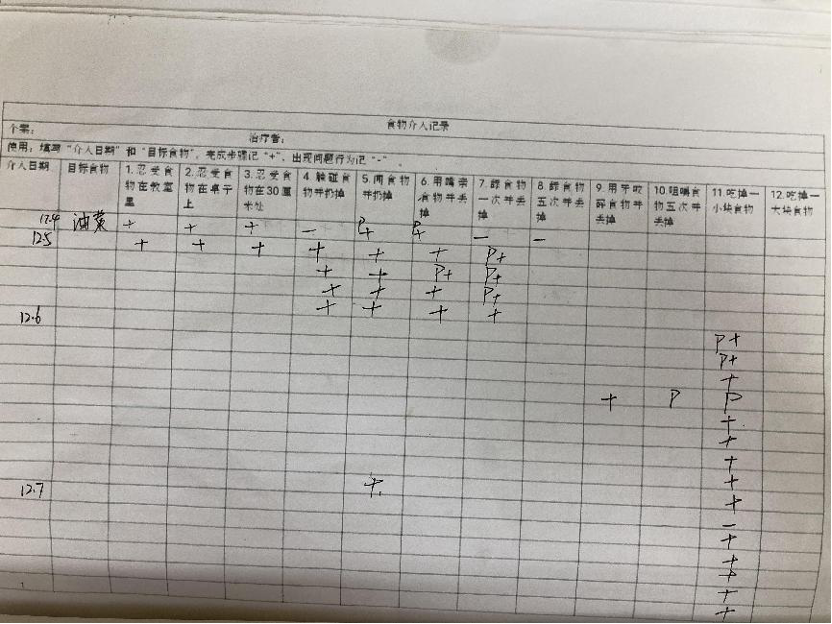 食物介入记录
个案： 治疗者：
使用：填写“介入日期”和“目标食物”，完成步骤记“+”，出现问题行为记“-”。
介入日期 目标食物 1.忍受食物在教室里 2.忍受食物在桌子上 3.忍受食物在30厘米处 4.触碰食物并扔掉 5.闻食物并扔掉 6.用嘴亲亲食物并丢掉 7.舔食物一次并丢掉 8.舔食物五次并丢掉 9.用牙咬碎食物并丢掉 10.咀嚼食物五次并丢掉 11.吃掉一小块食物 12.吃掉一大块食物
12.4 油菜 + + + - P+ P+ - -
12.5 + + + + + + P+
+ + P+ P+
+ + + P+
+ + + +
12.6
P+
P+
+
+ P P
+
+
+
+
12.7 +
+
-
+
+
+
+
+